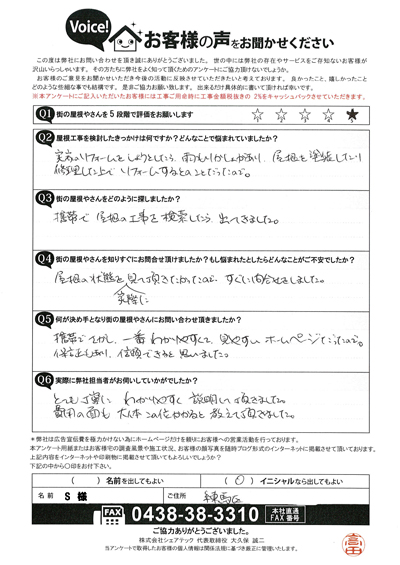 Voice! お客様の声をお聞かせください
この度は弊社にお問い合わせを頂き誠にありがとうございました。 世の中には弊社の存在やサービスをご存知ないお客様が
沢山いらっしゃいます。 その方たちに弊社をよく知って頂くためのアンケートにご協力頂けないでしょうか。
お客様のご意見をお聞かせいただき今後の活動に反映させていただきたいと考えております。 良かったこと、嬉しかったこと
どのような些細な事でも結構です。 是非ご協力お願い致します。 出来るだけ具体的に書いて頂ければ幸いです。
※本アンケートにご記入いただいたお客様には工事ご用命時に工事金額税抜きの 2%をキャッシュバックさせていただきます。
Q1 街の屋根やさんを 5 段階で評価をお願いします ☆ ☆ ☆ ☆ ★
Q2 屋根工事を検討したきっかけは何ですか?どんなことで悩まれていましたか?
実家のリフォームをしようとしたら、雨もりかしょがあり、屋根を塗装したり
修理した上でリフォームするとのことだったので。
Q3 街の屋根やさんをどのように探しましたか?
携帯で屋根の工事を検索したら出てきました。
Q4 街の屋根やさんを知りすぐにお問合せ頂けましたか?もし悩まれたとしたらどんなことがご不安でしたか?
屋根の状態を見て頂きたかったので、すぐに問合せをしました。
実際に
Q5 何が決め手となり街の屋根やさんにお問い合わせ頂きましたか?
携帯でさがし、一番わかりやすくて、見やすいホームページだったので。
保証もあり、信頼できると思いました。
Q6 実際に弊社担当者がお伺いしていかがでしたか?
とても丁寧に わかりやすく 説明して頂きました。
費用の面も大体この位かかると教えて頂きました。
※弊社は広告宣伝費を極力かけない為にホームページだけを頼りにお客様への営業活動を行っております。
本アンケート用紙またはお客様宅の調査風景や施工状況、お客様の顔写真を随時ブログ形式のインターネットに掲載させて頂いております。
上記内容をインターネットや印刷物に掲載させて頂いてもよろしいでしょうか?
下記の中から〇印をお付け下さい。
( ) 名前を出してもよい ( 〇 ) イニシャルなら出してもよい
名前 S 様 ご住所 練馬区
FAX 0438-38-3310 本社直通 FAX番号
ご協力ありがとうございました。
株式会社シェアテック 代表取締役 大久保 誠二
当アンケートで取得したお客様の個人情報は関係法規に基づき厳正に管理いたします。